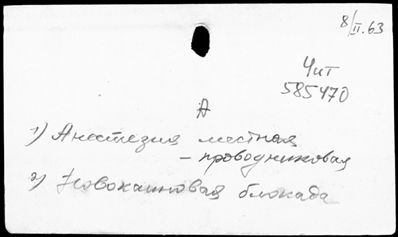 8/II.63
Чит
585470
А
1) Анестезия местная
– проводниковая
2) Новокаиновая блокада